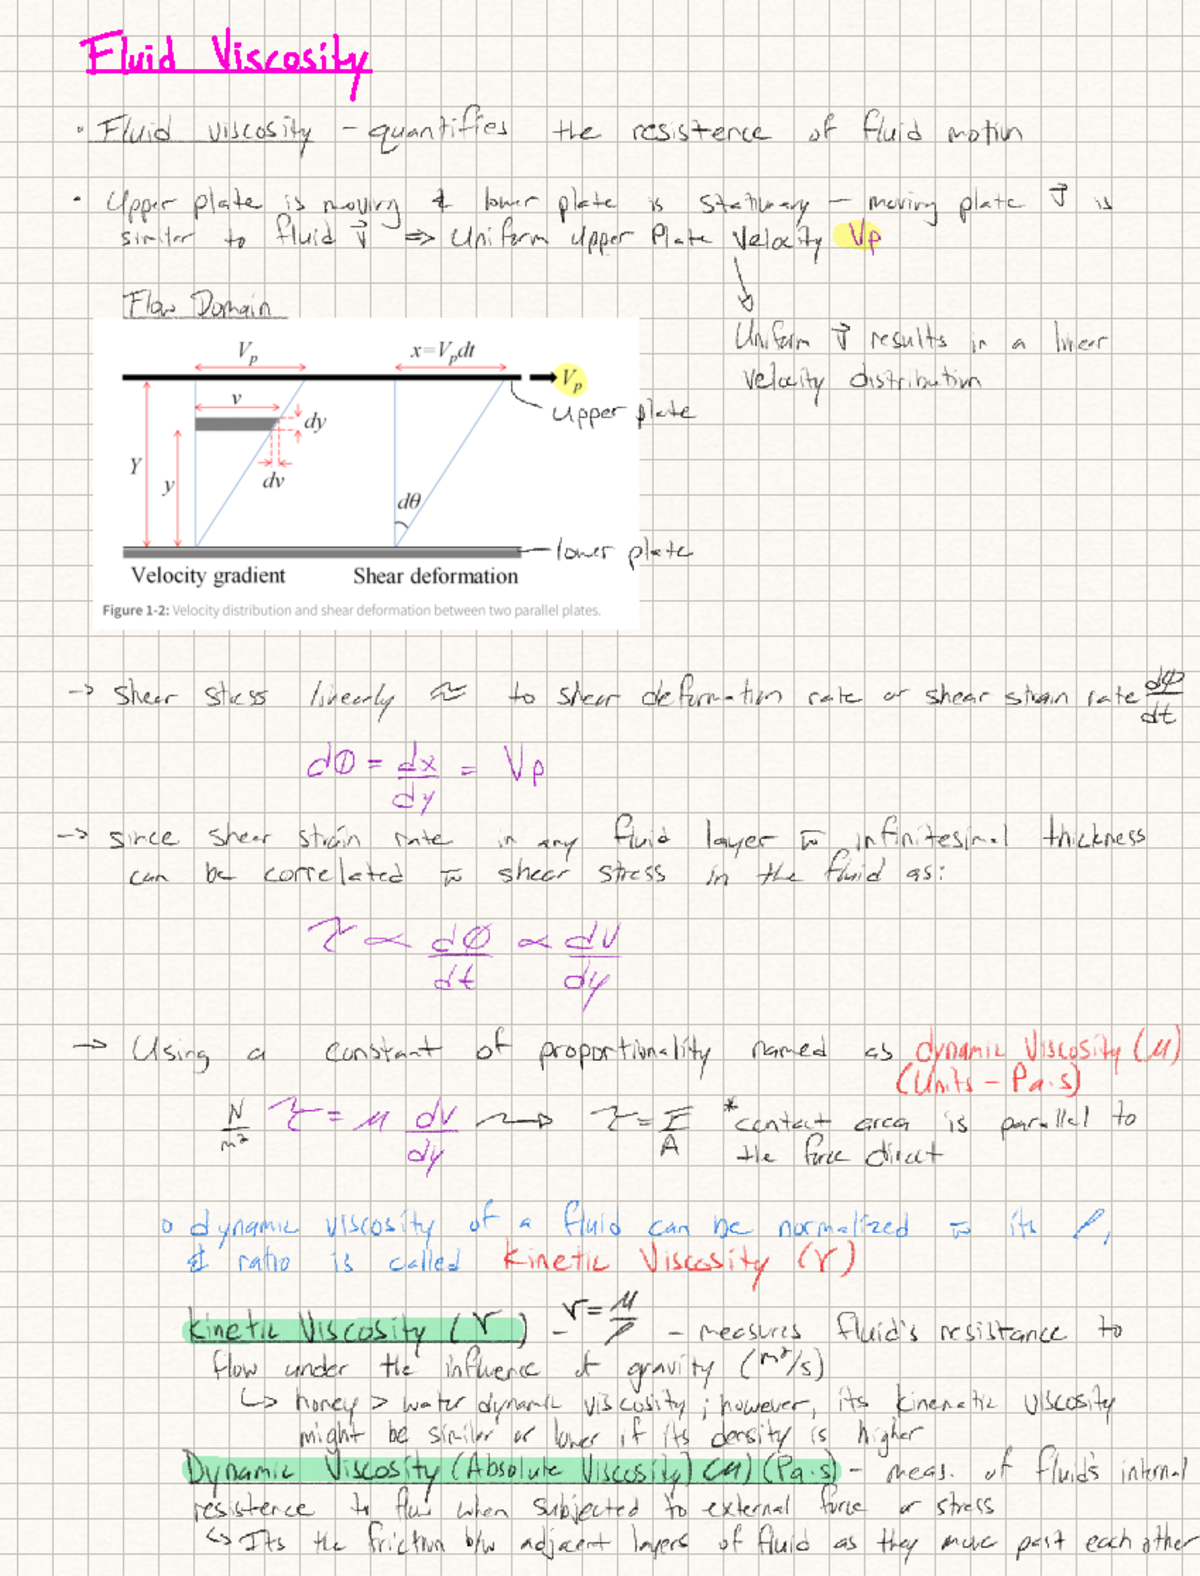 Fluid Viscosity
• Fluid viscosity - quantifies the resistence of fluid motion
• Upper plate is moving & lower plate is stationary - moving plate v⃗ is
similar to fluid v⃗ ⇒ Uniform Upper Plate Velocity Vp
Flow Domain
Uniform v⃗ results in a linear
velocity distribution
Vp
x=Vpdt
Vp
v
dy
upper plate
Y
y
dv
dθ
lower plate
Velocity gradient
Shear deformation
Figure 1-2: Velocity distribution and shear deformation between two parallel plates.
→ shear stress linearly ≈ to shear deformation rate or shear strain rate dØ/dt
dØ = dx/dy = Vp
→ since shear strain rate in any fluid layer w infinitesimal thickness
can be correlated w shear stress in the fluid as:
τ ∝ dØ/dt ∝ dV/dy
→ Using a constant of proportionality named as dynamic Viscosity (μ)
(Units - Pa·s)
N/m² τ = μ dv/dy ⟿ τ = F/A *contact area is parallel to
the force direct
o dynamic viscosity of a fluid can be normalized w its ρ,
& ratio is called Kinetic Viscosity (γ)
Kinetic Viscosity (γ) - γ = μ/ρ - measures fluid's resistance to
flow under the influence of gravity (m²/s)
↳ honey > water dynamic viscosity; however, its kinematic viscosity
might be similar or lower if its density is higher
Dynamic Viscosity (Absolute Viscosity) (μ) (Pa·s) - meas. of fluids internal
resistence to flow when subjected to external force or stress
↳ Its the friction b/w adjacent layers of fluid as they move past each other